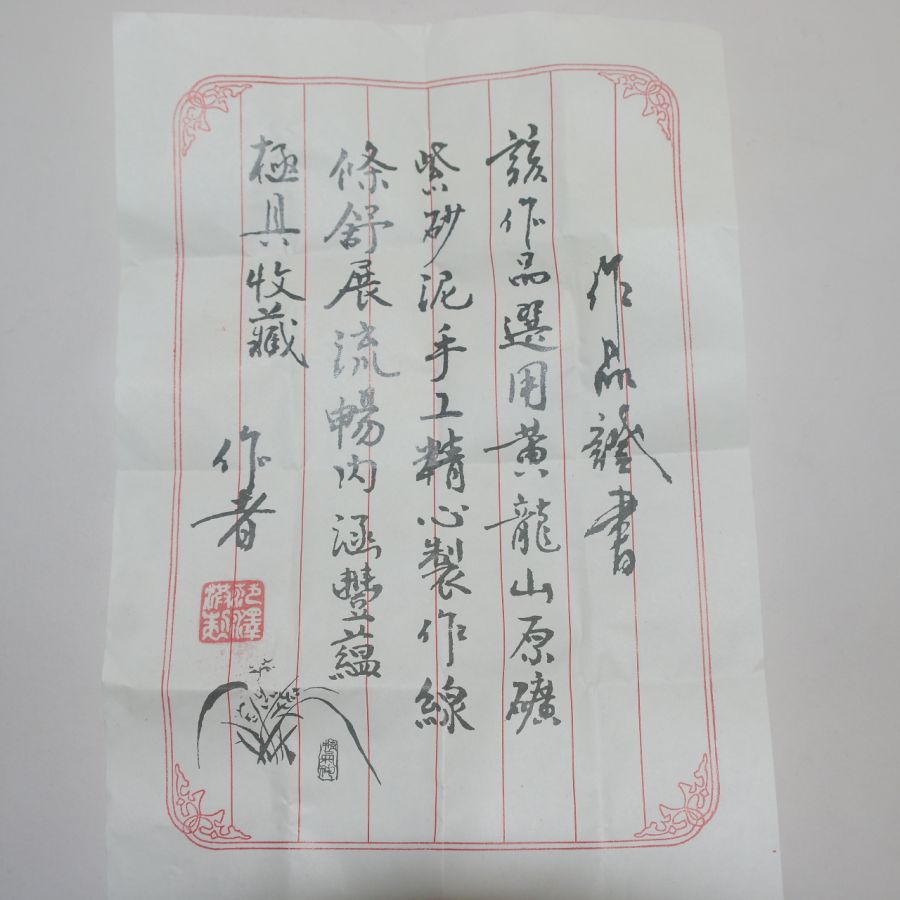 作品證書
該作品選用黃龍山原礦
紫砂泥手工精心製作線
條舒展流暢内涵豐蘊
極具收藏
作者